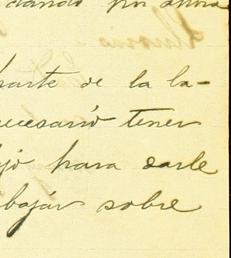 dando por ahora
parte de la la-
necesario tener
jó para darle
bajár sobre